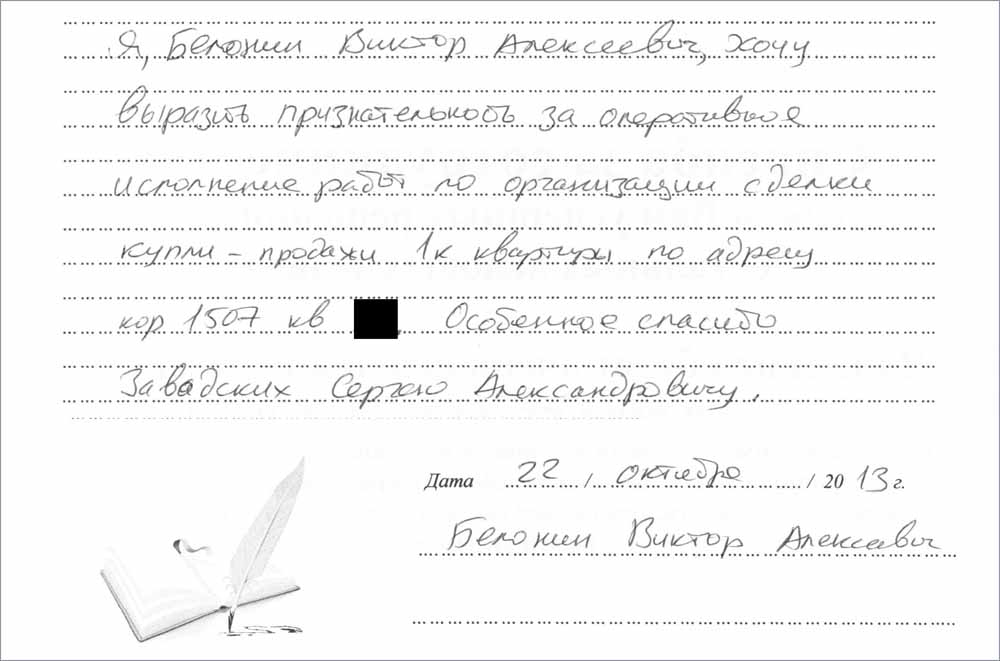 Я, Белонин Виктор Алексеевич, хочу
выразить признательность за оперативное
исполнение работ по организации сделки
купли - продажи 1к квартиры по адресу
кор 1507 кв . Особенное спасибо
Завадских Сергею Александровичу.
Дата 22 / октября / 2013 г.
Белонин Виктор Алексеевич